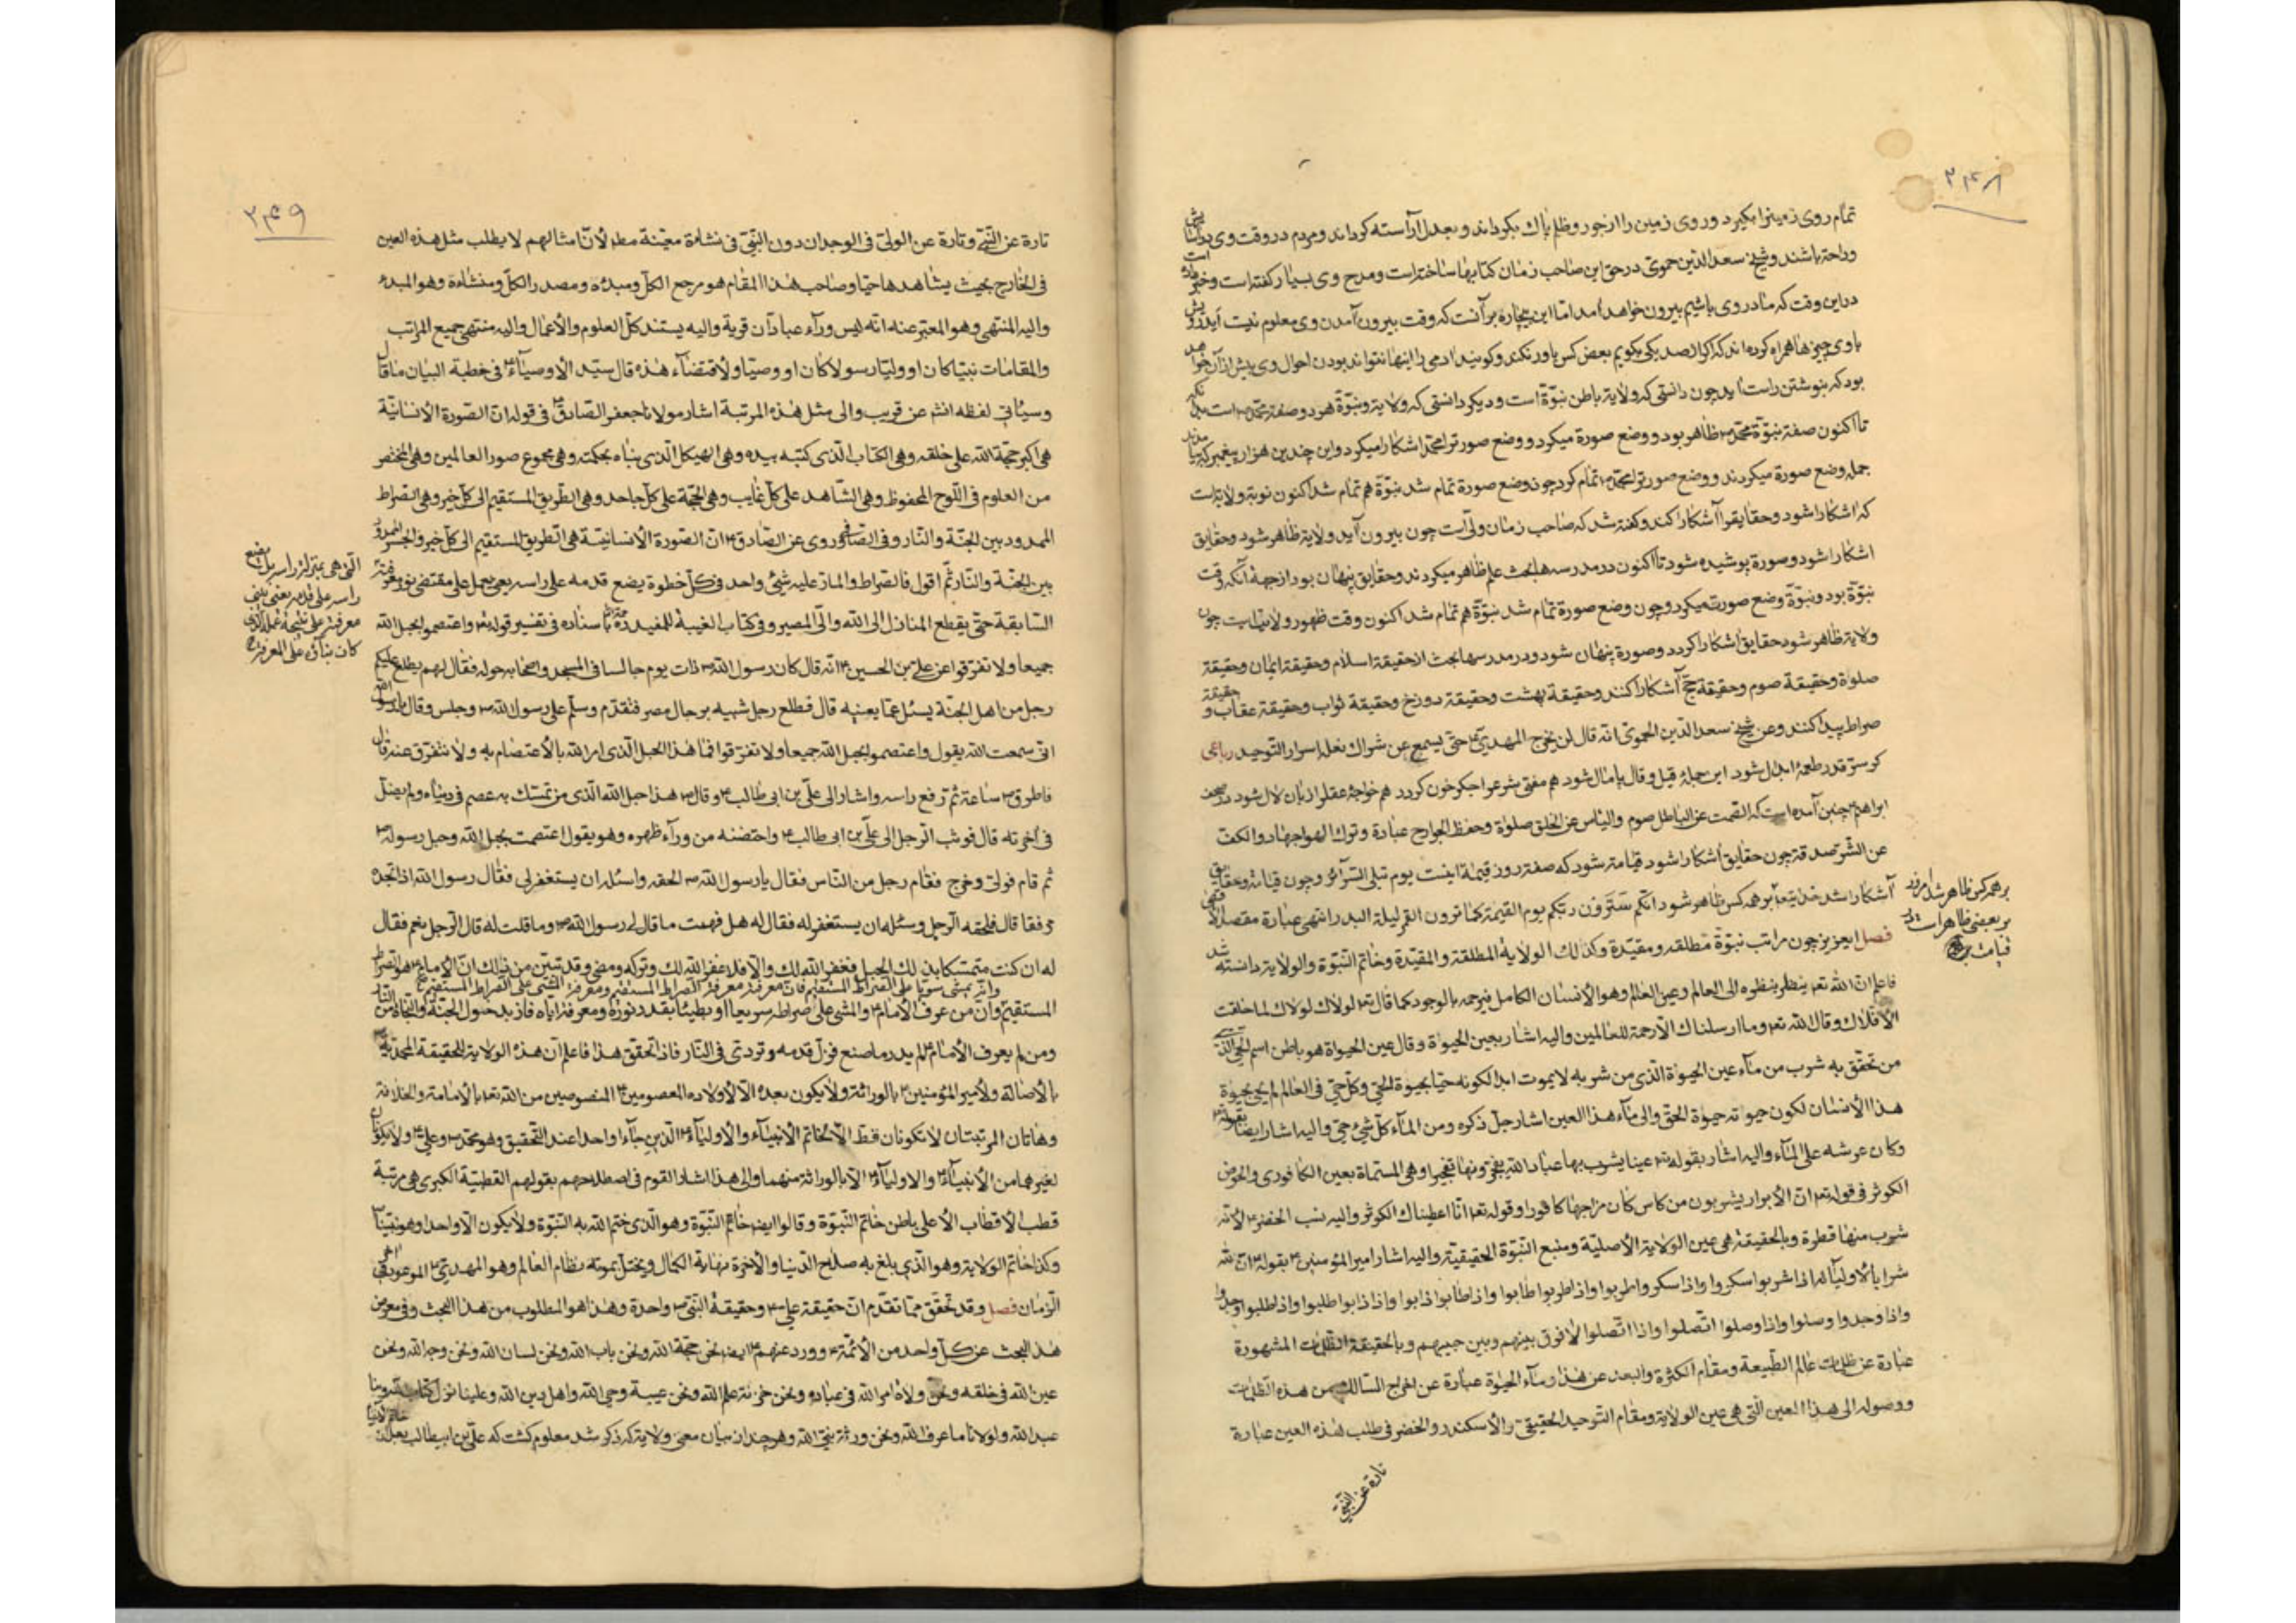 ۲۴۸
تمام روی زمین را بگیرد و روی زمین را از جور و ظلم پاک بگرداند و بعدل آراسته گرداند و مردم در وقت وی در آسایش
و راحت باشند و شیخ سعد الدین حموی در حق این صاحب زمان کتابها ساخته است و مدح وی بسیار گفته است و خبر داده است
در این وقت که ما در وی باشیم بیرون خواهد آمد اما این بیچاره بر آنست که وقت بیرون آمدن وی معلوم نیست ای درویش
با وی چیزها همراه کرده‌اند که اگر از صد یکی بگویم بعضی کس باور نکنند و گویند آدمی را اینها نتواند بودن احوال وی بیش از آن خواهد
بود که بنوشتن راست آید چون دانستی که ولایة باطن نبوّة است و دیگر دانستی که ولایة و نبوّة هر دو صفة محمّد است
تا اکنون صفة نبوّة محمّد ظاهر بود و وضع صورة میکرد و وضع صورة را محمّد آشکارا میکرد و این چندین هزار پیغمبر که
جمله وضع صورة میکردند و وضع صورة را محمّد تمام کرد چون وضع صورة تمام شد نبوّة هم تمام شد اکنون نوبة ولایة است
که آشکارا شود و حقایق را آشکارا کند و گفته شد که صاحب زمان ولیّ است چون بیرون آید ولایة ظاهر شود و حقایق
آشکارا شود و صورة پوشیده شود تا اکنون در مدرسه‌ها بحث علم ظاهر میکردند و حقایق پنهان بود از جهة آنکه وقت
نبوّة بود و نبوّة وضع صورتست میکرد و چون وضع صورة تمام شد نبوّة هم تمام شد اکنون وقت ظهور ولایتست چون
ولایة ظاهر شود حقایق آشکارا گردد و صورة پنهان شود و در مدرسها بحث از حقیقة اسلام و حقیقة ایمان و حقیقة
صلوة و حقیقة صوم و حقیقة حجّ آشکارا کنند و حقیقة بهشت و حقیقة دوزخ و حقیقة ثواب و حقیقة عقاب و حقیقة
صراط پیدا کنند و عن شیخ سعد الدّین الحموی انّه قال لن یخرج المهدیّ حتّی یسمع عن شراک نعله اسرار التّوحید رباعی
گر سرّ قدر طعمۀ ابدال شود این جملۀ قیل و قال پامال شود هم مفتی شرع را جگر خون گردد هم خواجۀ عقل را زبان لال شود در صحف
ابراهیم چنین آمده است که الصّمت عن الباطل صوم والیأس عن الخلق صلوة وحفظ الجوارح عبادة وترک الهوا جهاد والکفّ
عن الشّرّ صدقة چون حقایق آشکارا شود قیامة شود که صفة روز قیمة اینست یوم تبلی السّرآئر و چون قیامة و حقایق
آشکارا شد خدایتعالی بر همه کس ظاهر شود انّکم سترون ربّکم یوم القیمة کما ترون القمر لیلة البدر انتهی عبارة مقصد الاقصی
فصل ای عزیز چون مراتب نبوّة مطلقه و مقیّدة و کذلک الولایة المطلقة والمقیّدة وخاتم النّبوّة والولایة دانسته شد
فاعلم انّ الله تعه ینظر بنظره الی العالم وعین العالم وهو الانسان الکامل فیرحمه بالوجود کما قال تعه لولاک لولاک لما خلقت
الافلاک وقال الله تعه وما ارسلناک الّا رحمة للعالمین والیه اشار بعین الحیوة وقال عین الحیوة هو باطن اسم الحیّ الّذی
من تحقّق به شرب من مآء عین الحیوة الّذی من شربه لایموت ابدا لکونه حیّا بحیوة الحیّ وکلّ حیّ فی العالم لم یحی بحیوة
هذا الانسان لکون حیوته حیوة الحقّ والی مآء هذا العین اشار جلّ ذکره ومن المآء کلّ شیء حیّ والیه اشار ایضا بقوله
وکان عرشه علی المآء والیه اشار بقوله تعه عینا یشرب بها عباد الله یفجّرونها تفجیرا وهی المسمّاة بعین الکافوری والحوض
الکوثر فی قوله تعه انّ الابرار یشربون من کأس کان مزاجها کافورا وقوله تعه انّا اعطیناک الکوثر والیه نسب الخضر لانّه
شرب منها قطرة وبالحقیقة هی عین الولایة الاصلیّة ومنبع النّبوّة الحقیقیّة والیه اشار امیر المؤمنین بقوله انّ لله
شرابا لاولیآئه اذا شربوا سکروا واذا سکروا طربوا واذا طربوا طابوا واذا طابوا ذابوا واذا ذابوا طلبوا واذا طلبوا وجدوا
واذا وجدوا وصلوا واذا وصلوا اتّصلوا واذا اتّصلوا لا فرق بینهم وبین حبیبهم وبالحقیقة الظّلمات المشهورة
عبارة عن ظلمات عالم الطّبیعة ومقام الکثرة والبعد عن هذا ومآء الحیوة عبارة عن اخراج السّالک من هذه الظّلمات
ووصوله الی هذا العین الّتی هی عین الولایة ومقام التّوحید الحقیقیّ والاسکندر والخضر فی طلب هذه العین عبارة
تارة عن النّبیّ
بر همه کس ظاهر شد امروز
بر بعضی ظاهر است و در
۲۴۹
تارة عن النّبیّ وتارة عن الولیّ فی الوجدان دون النّبیّ فی نشاءة معیّنة مط لانّ امثالهم لا یطلب مثل هذه العین
فی الخارج بحیث یشاهدها حیّا وصاحب هذا المقام هو مرجع الکلّ ومبدءه ومصدر الکلّ ومنشاءه وهو المبدء
والیه المنتهی وهو المعبّر عنه انّه لیس ورآء عبادان قریة والیه یستند کلّ العلوم والاعمال والیه منتهی جمیع المراتب
والمقامات نبیّا کان او ولیّا رسولا کان او وصیّا ولاقتضآء هذه قال سیّد الاوصیآء فی خطبة البیان ما قال
وسیأتی لفظه انشم عن قریب والی مثل هذه المرتبة اشار مولانا جعفر الصّادق فی قوله انّ الصّورة الانسانیّة
هی اکبر حجّة الله علی خلقه وهی الکتاب الّذی کتبه بیده وهی الهیکل الّذی بناه بحکمته وهی مجموع صور العالمین وهی المختصر
من العلوم فی اللّوح المحفوظ وهی الشّاهد علی کلّ غایب وهی الحجّة علی کلّ جاحد وهی الطّریق المستقیم الی کلّ خیر وهی الصّراط
الممدود بین الجنّة والنّار وفی الصّافی وروی عن الصّادق انّ الصّورة الانسانیّة هی الطّریق المستقیم الی کلّ خیر والجسر الممدود
بین الجنّة والنّار ثمّ اقول فالصّراط والمارّ علیه شیء واحد فی کلّ خطوة یضع قدمه علی راسه یعنی یعمل علی مقتضی نور معرفته
السّابقة حتّی یقطع المنازل الی الله والی المصیر وفی کتاب الغیبة للمفید ره باسناده فی تفسیر قوله تعه واعتصموا بحبل الله
جمیعا ولا تفرّقوا عن علیّ بن الحسین انّه قال کان رسول الله ذات یوم جالسا فی المسجد واصحابه حوله فقال لهم یطلع علیکم
رجل من اهل الجنّة یسئل عمّا یعنیه قال فطلع رجل شبیه برجال مصر فتقدّم وسلّم علی رسول الله وجلس وقال یا رسول الله
انّی سمعت الله یقول واعتصموا بحبل الله جمیعا ولا تفرّقوا فما هذا الحبل الّذی امر الله بالاعتصام به ولا نتفرّق عنه قال
فاطرق ساعة ثمّ رفع راسه واشار الی علیّ بن ابی طالب وقال هذا حبل الله الّذی من تمسّک به عصم فی دنیاه ولم یضلّ
فی آخرته قال فوثب الرّجل الی علیّ بن ابی طالب واحتضنه من ورآء ظهره وهو یقول اعتصمت بحبل الله وحبل رسوله
ثمّ قام فولّی وخرج فقام رجل من النّاس فقال یا رسول الله الحقه واسئله ان یستغفر لی فقال رسول الله اذا تجده
مرفقا قال فلحقه الرّجل وسئله ان یستغفر له فقال له هل فهمت ما قال لی رسول الله وما قلت له قال الرّجل نعم فقال
له ان کنت متمسّکا بذلک الحبل فغفر الله لک والّا فلا غفر الله لک وترکه ومضی وقد تبیّن من ذلک انّ الامام هو الصّراط
وانّه یمشی سویّا علی الصّراط المستقیم فانّ معرفته معرفة الصّراط المستقیم ومعرفة المشی علی الصّراط المستقیم
المستقیم وانّ من عرف الامام والمشی علی صراطه سریعا او بطیئا بقدر نوره ومعرفته ایّاه فاز بدخول الجنّة والنّجاة من النّار
ومن لم یعرف الامام لم یدر ما صنع فزلّ قدمه وتردّی فی النّار فاذا تحقّق هذا فاعلم انّ هذه الولایة للحقیقة المحمّدیّة
بالاصالة ولامیر المؤمنین بالوراثة ولایکون بعده الّا لاولاده المعصومین المنصوصین من الله تعه بالامامة والخلافة
وهاتان المرتبتان لا تکونان قطّ الّا لخاتم الانبیآء والاولیآء الّذین جاءا واحدا عند التّحقیق وهو محمّد وعلیّ ولا یکونان
لغیرهما من الانبیآء والاولیآء الّا بالوراثة منهما والی هذا اشار القوم فی اصطلاحهم بقولهم القطبیّة الکبری هی مرتبة
قطب الاقطاب الاعلی باطن خاتم النّبوّة وقالوا ایضا خاتم النّبوّة وهو الّذی ختم الله به النّبوّة ولا یکون الّا واحدا وهو نبیّنا
وکذا خاتم الولایة وهو الّذی بلغ به صلاح الدّنیا والآخرة نهایة الکمال ویختلّ بموته نظام العالم وهو المهدیّ الموعود فی آخر
الزّمان فصل وقد تحقّق ممّا تقدّم انّ حقیقة علی وحقیقة النّبیّ واحدة وهذا هو المطلوب من هذا البحث وفی معرض
هذا البحث عن کلّ واحد من الائمّة وورد عنهم ایضا نحن حجّة الله ونحن باب الله ونحن لسان الله ونحن وجه الله ونحن
عین الله فی خلقه ونحن ولاة امر الله فی عباده ونحن خزنة علم الله ونحن عیبة وحی الله واهل دین الله وعلینا نزل کتاب الله وبنا
عبد الله ولولانا ما عرف الله ونحن ورثة نبیّ الله وهر چند از بیان معنی ولایة که ذکر شد معلوم گشت که علیّ بن ابیطالب بعد از خاتم انبیا
الّتی هی بمنزلة راسه بل یضع
راسه علی قدمه یعنی یبنی
معرفته علی نتیجة عمله الّذی
کان بناؤه علی المعرفة